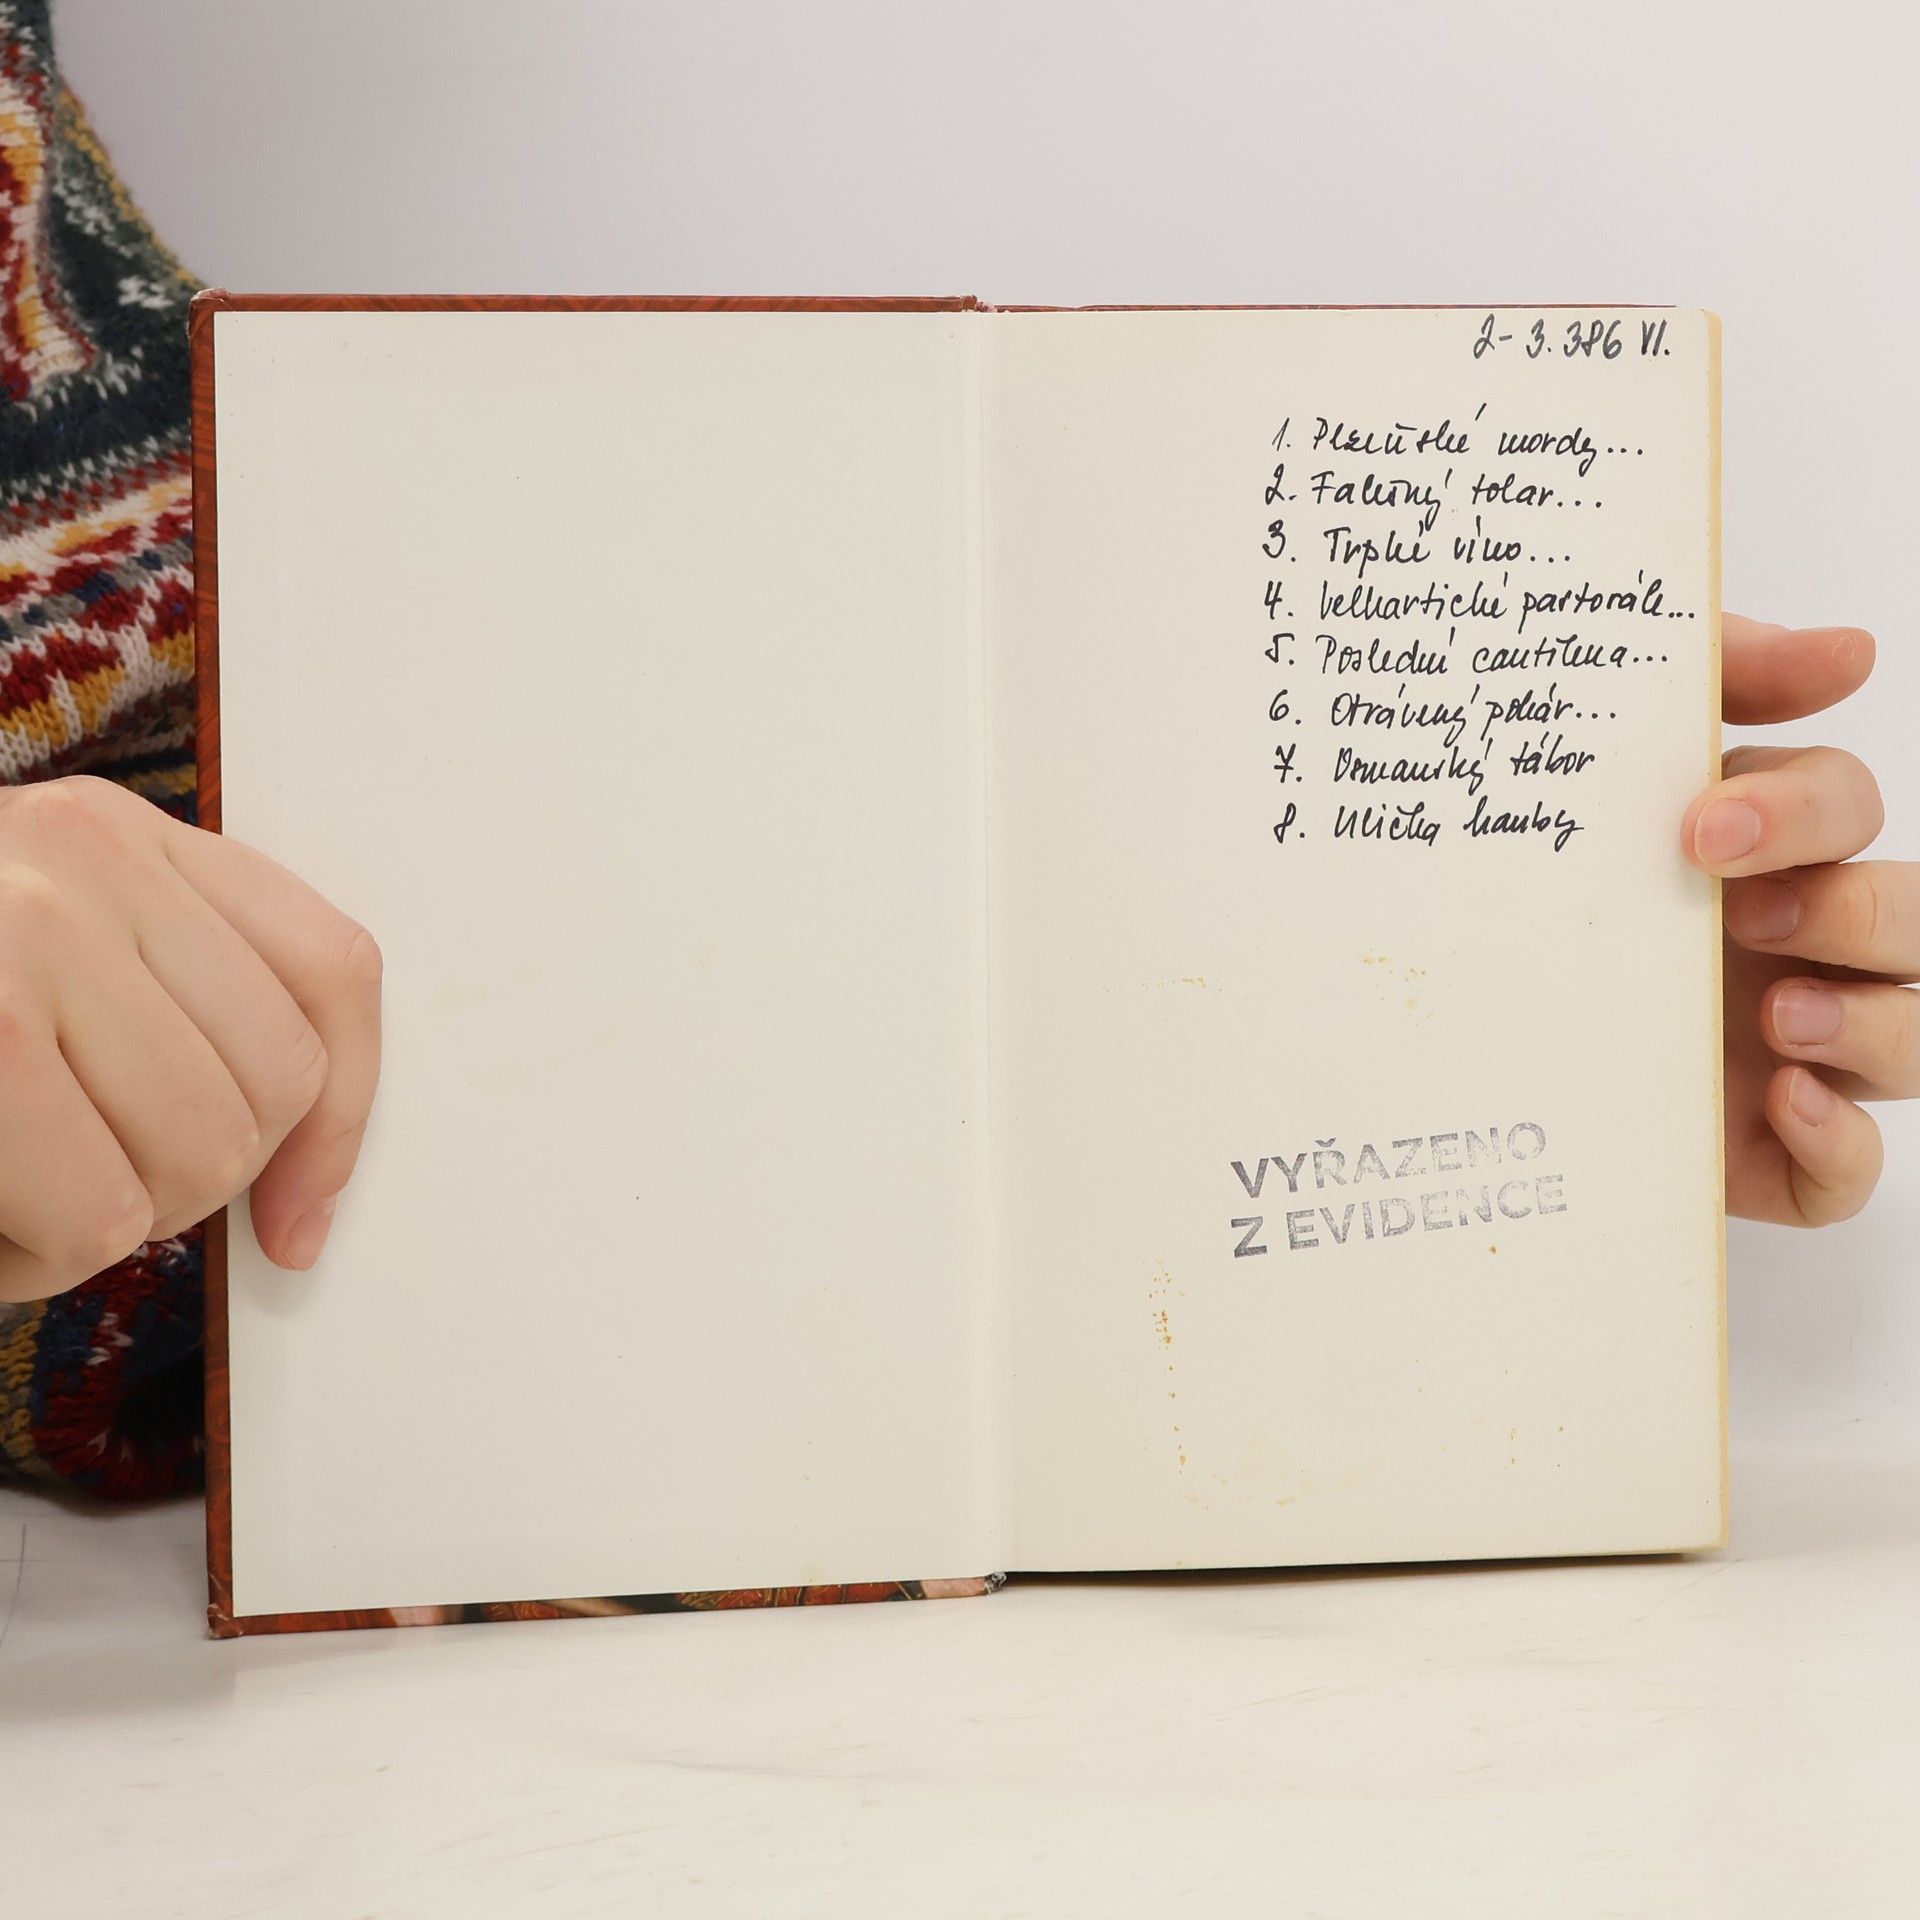 2- 3.386 VI.
1. Plzeňské mordy...
2. Falešný tolar...
3. Trpké víno...
4. Velhartické pastorále...
5. Poslední cantilena...
6. Otrávený pohár...
7. Osmanský tábor
8. Ulička hanby
VYŘAZENO
Z EVIDENCE